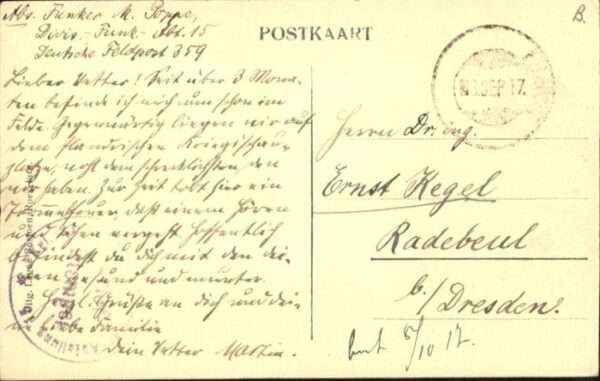 Abs. Funker M. Poppe,
Divis.-Funk.-Abt. 15
Deutsche Feldpost 359
POSTKAART
B.
Lieber Vetter! Seit über 3 Mona-
ten befinde ich mich nun schon im
Felde. Gegenwärtig liegen wir auf
dem flandrischen Kriegsschau-
platze, wohl dem schrecklichsten, den
wir haben. Zur Zeit tobt hier ein
Trommelfeuer, daß einem Hören
und Sehen vergeht. Hoffentlich
befindest du dich mit den dei-
nen gesund und munter.
Herzl. Grüße an dich und dei-
ne liebe Familie
dein Vetter Martin.
SEP 17.
Herrn Dr. ing.
Ernst Kegel
Radebeul
b/Dresden.
5/10 17.